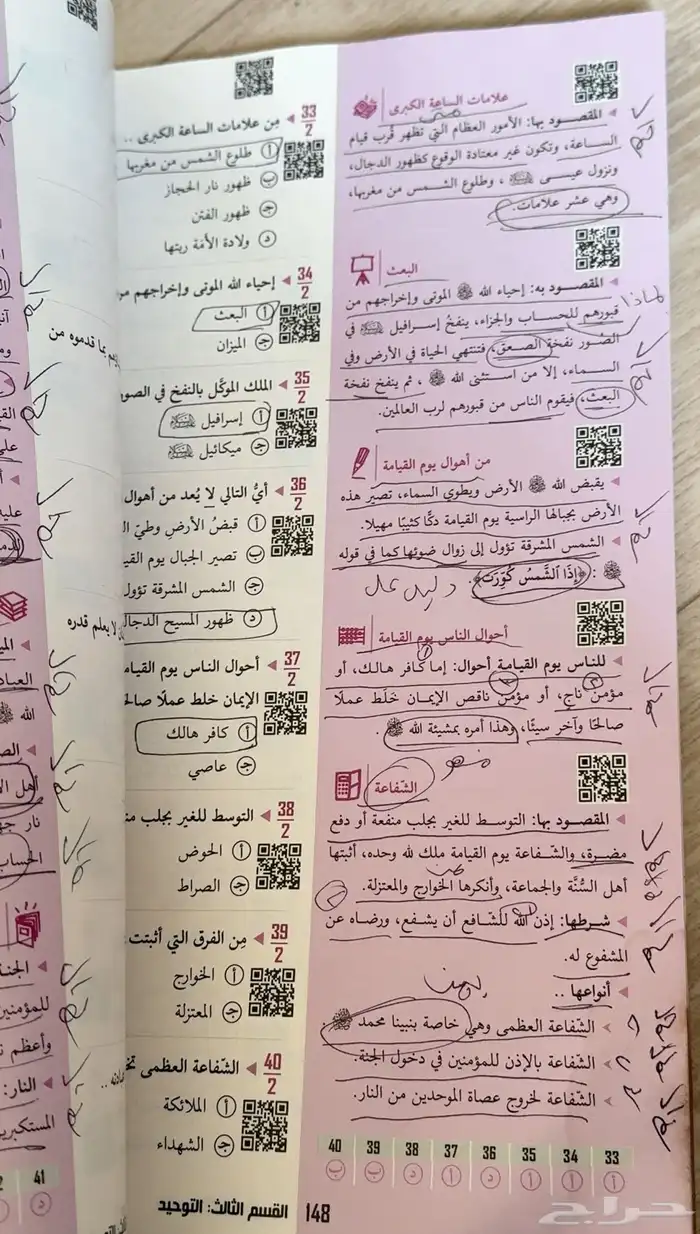 علامات الساعة الكبرى
المقصود بها: الأمور العظام التي تظهر قُرب قيام
الساعة، وتكون غير معتادة الوقوع كظهور الدجال،
ونزول عيسى ﷺ، وطلوع الشمس من مغربها،
وهي عشر علامات.
البعث
المقصود به: إحياء الله ﷻ الموتى وإخراجهم من
لماذا
قبورهم للحساب والجزاء، ينفخ إسرافيل في
الصُّور نفخة الصعق، فتنتهي الحياة في الأرض وفي
السماء، إلا من استثنى الله ﷻ، ثم ينفخ نفخة
البعث، فيقوم الناس من قبورهم لرب العالمين.
من أهوال يوم القيامة
يقبض الله ﷻ الأرض ويطوي السماء، تصير هذه
الأرض بجبالها الراسية يوم القيامة دكًّا كثيبًا مهيلا.
الشمس المشرقة تؤول إلى زوال ضوئها كما في قوله
ﷻ: ﴿إِذَا ٱلشَّمْسُ كُوِّرَتْ﴾.
أحوال الناس يوم القيامة
للناس يوم القيامة أحوال: إما كافر هالك، أو
مؤمن ناج، أو مؤمن ناقص الإيمان خَلَط عملًا
صالحًا وآخر سيئًا، وهذا أمره بمشيئة الله ﷻ.
الشفاعة
المقصود بها: التوسط للغير بجلب منفعة أو دفع
مضرة، والشفاعة يوم القيامة ملك لله وحده، أثبتها
أهل السُّنَّة والجماعة، وأنكرها الخوارج والمعتزلة.
شرطها: إذن الله للشافع أن يشفع، ورضاه عن
المشفوع له.
أنواعها ..
الشفاعة العظمى وهي خاصة بنبينا محمد ﷺ
الشفاعة بالإذن للمؤمنين في دخول الجنة.
الشفاعة لخروج عصاة الموحدين من النار.
33 34 35 36 37 38 39 40
أ أ أ د أ د ب ب
33/2 مِن علامات الساعة الكبرى ..
أ طلوع الشمس من مغربها
ب ظهور نار الحجاز
ج ظهور الفتن
د ولادة الأمَة ربتها
34/2 إحياء الله الموتى وإخراجهم مر
أ البعث
ج الميزان
35/2 الملك الموكَّل بالنفخ في الصور
أ إسرافيل
ج ميكائيل
36/2 أيُّ التالي لا يُعد من أهوال
أ قبضُ الأرضِ وطيّ ال
ب تصير الجبال يوم القي
ج الشمس المشرقة تؤول
د ظهور المسيح الدجال
37/2 أحوال الناس يوم القيامة
الإيمان خلط عملًا صالح
أ كافر هالك
ج عاصي
38/2 التوسط للغير بجلب من
أ الحوض
ج الصراط
39/2 مِن الفرق التي أثبتت
أ الخوارج
ج المعتزلة
40/2 الشفاعة العظمى تخ
أ الملائكة
ج الشهداء
148 القسم الثالث: التوحيد
بما قدموه من
لا يعلم قدره
العباد
الحساب
الجنة
للمؤمنين
وأعظم
النار:
المستكبرين
41
د
حراج